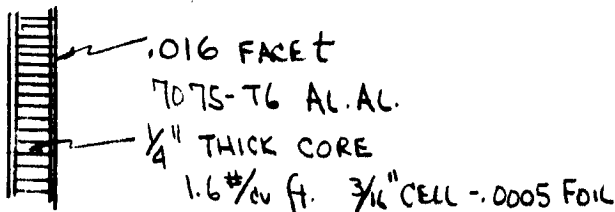 .016 FACE t
7075-T6 AL.AL.
1/4" THICK CORE
1.6 #/cu ft. 3/16" CELL -.0005 FOIL